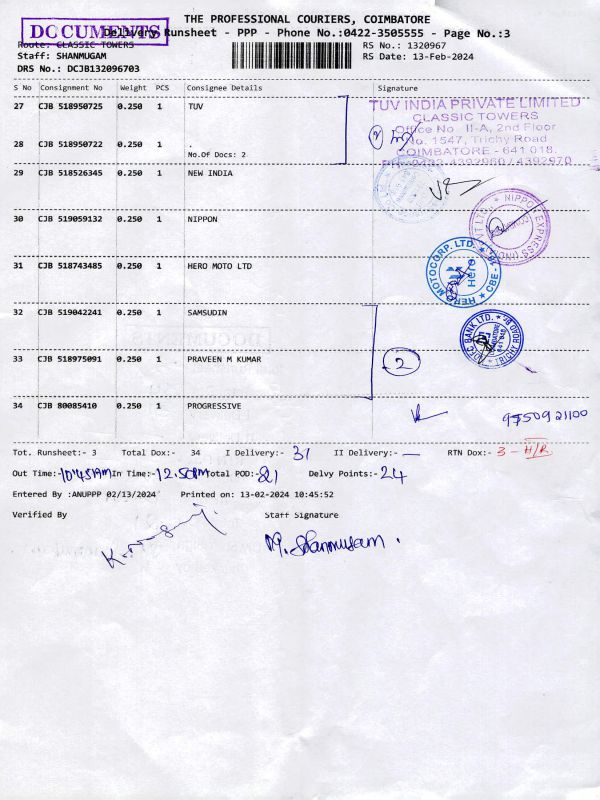 THE PROFESSIONAL COURIERS, COIMBATORE
DOCUMENTS
Delivery Runsheet - PPP - Phone No.:0422-3505555 - Page No.:3
Route: CLASSIC TOWERS RS No.: 1320967
Staff: SHANMUGAM RS Date: 13-Feb-2024
DRS No.: DCJB132096703
S No Consignment No Weight PCS Consignee Details Signature
27 CJB 518950725 0.250 1 TUV
TUV INDIA PRIVATE LIMITED
CLASSIC TOWERS
Office No. II-A, 2nd Floor
No. 1547, Trichy Road
COIMBATORE - 641 018.
PH: 0422-4392960 / 4392970
28 CJB 518950722 0.250 1 .
No.Of Docs: 2
29 CJB 518526345 0.250 1 NEW INDIA
30 CJB 519059132 0.250 1 NIPPON
NIPPON EXPRESS (INDIA) PVT LTD.
31 CJB 518743485 0.250 1 HERO MOTO LTD
HERO MOTOCORP. LTD. CBE - 18
Hero
32 CJB 519042241 0.250 1 SAMSUDIN
BANK LTD. TRICHY ROAD BR
COIMBATORE
33 CJB 518975091 0.250 1 PRAVEEN M KUMAR 2
34 CJB 80085410 0.250 1 PROGRESSIVE 9750921100
Tot. Runsheet:- 3 Total Dox:- 34 I Delivery:- 31 II Delivery:- — RTN Dox:- 3 - H/R
Out Time:-10:45AM In Time:-12.50PM Total POD:-21 Delvy Points:- 24
Entered By :ANUPPP 02/13/2024 Printed on: 13-02-2024 10:45:52
Verified By Staff Signature
M. Shanmugam.